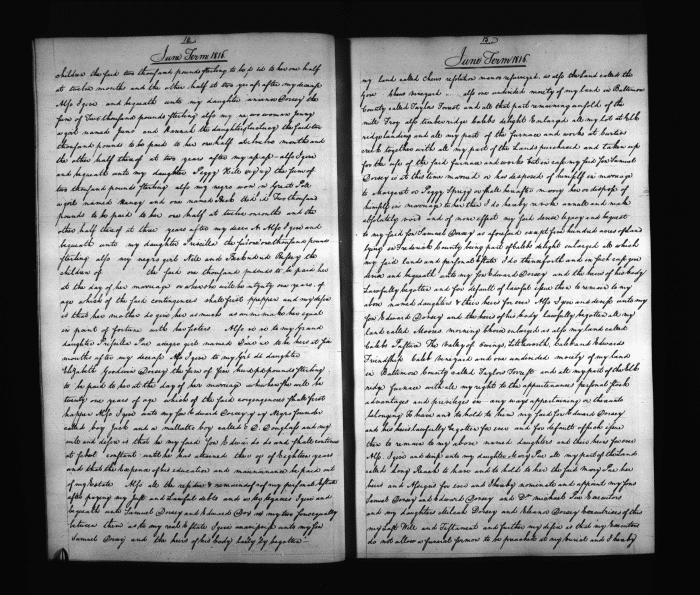 14
June Term 1816
children the said two thousand pounds sterling to be paid to her one half
at twelve months and the other half at two years after my decease
Also I give and bequeath unto my daughter Dorsey the
sum of Two thousand pounds sterling also my negro woman Jenny
a girl named Juno and Hannah the daughter the said two
thousand pounds to be paid to her one half at twelve months and
the other half thereof at two years after my Also I give
and bequeath unto my daughter Peggy Hill the sum of
two thousand pounds sterling also my negro Great Poll
a girl named Nancy and one named Beck the said Two thousand
pounds to be paid to her one half at twelve months and the
other half thereof at three years after my decease Also I give and
bequeath unto my daughter Priscilla the thousand pounds
sterling also my negro girl Nell and Beck and the
children of the said one thousand pounds to be paid her
at the day of her marriage or when she will be twenty one years of
age which of the said contingences shall first happen and my desire
is that her mother do give her as much as will make her equal
in point of fortune with her sisters Also to my Grand
daughter Priscilla a negro girl named to be hers at six
months after my decease Also I give to my Grand daughter
Elizabeth Goodwin Dorsey the sum of five hundred pounds sterling
to be paid to her at the day of her marriage when she will be
twenty one years of age which of the said contingences shall first
happen Also I give unto my son Edward Dorsey my Negro founder
called boy Jack and a mullatto boy called and my
will and desire is that he my said son Edward do and shall continue
at school constant until he has attained the age of Eighteen years
and that the expence of his education and maintenance be paid out
of my Estate Also all the residue & remainder of my personal Estate
after paying my Just and Lawful debts and Legacies I give and
bequeath unto Samuel Dorsey and Edward Dorsey my two sons equally
between them as to my real Estate I give unto my son
Samuel Dorsey and the heirs of his body lawfully begotten
15
June Term 1816
my land called Chews resolution manor resurveyed as also the land called the
Gore Chews Vineyard also one undivided moiety of my land in Baltimore
County called Taylors Forest and all that part remaining unsold of the
mile Troy also timber ridge Cabbs delight Enlarged all my lot at Elk
ridge landing and all my part of the furnace and works at Curtises
creek together with all my part of the Lands purchased and taken up
for the use of the said furnace and works but in case my said son Samuel
Dorsey is at this time married or has disposed of himself in marriage
to Margaret or Peggy Sprigg or shall hereafter marry her or dispose of
himself in marriage to her then I do hereby revoke annull and make
absolutely void and of none effect my said devise legacy and bequest
to my said son Samuel Dorsey as aforesaid except four hundred acres of land
lying in Frederick County being part of Cabbs delight enlarged all which
my said lands and personal Estate I do then and in such case give
devise and bequeath unto my son Edward Dorsey and the heirs of his body
Lawfully begotten and for default of lawful issue then to remain to my
above named daughters & their heirs for ever Also I give and devise unto my
son Edward Dorsey and the heirs of his body lawfully begotten all my
land called Moores morning choice enlarged as also my land called
Calebs Pasture The Valley of Owings Littleworth, Caleb and Edwards
Friendship Caleb Vineyard and one undivided moiety of my land
in Baltimore County called Taylors Forrest and all my part of the Elk
ridge furnace with all my right to the appurtenances personal stock
advantages and privileges in any ways appertaining or thereunto
belonging to have and to hold to him my said son Edward Dorsey
and his heirs lawfully begotten for ever and for default of such issue
then to remain to my above named daughters and their heirs for ever
Also I give and devise unto my daughter Mary all my part of the Lands
called Long Reach to have and to hold to her the said Mary her
heirs and Assigns for ever and I hereby nominate and appoint my sons
Samuel Dorsey and Edward Dorsey and Dr. michael Executors
and my daughters Milcah Dorsey and Eleanor Dorsey Executrixes of this
my Last Will and Testament and further my desire is that my Executors
do not allow a funeral sermon to be preached at my burial and I hereby